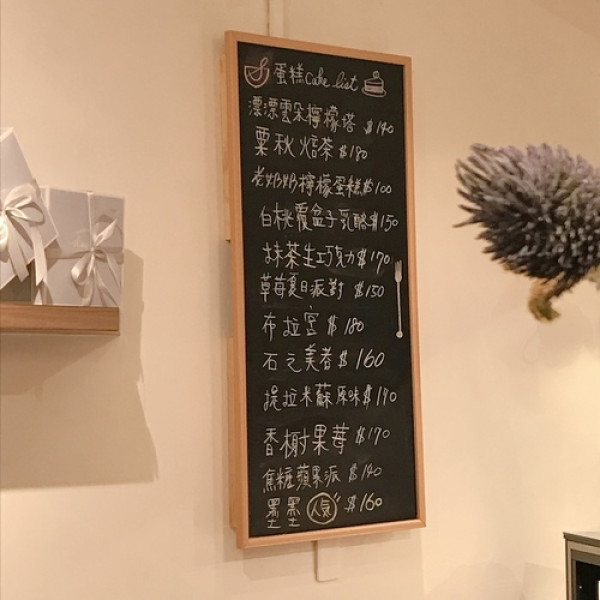 蛋糕 Cake list
漂漂雲朵檸檬塔 $140
栗秋焙茶 $180
老奶奶檸檬蛋糕 $100
白桃覆盆子乳酪 $150
抹茶生巧克力 $170
草莓夏日派對 $150
布拉宮 $180
石之美者 $160
提拉米蘇 原味 $140
香榭果莓 $170
焦糖蘋果派 $140
墨墨 人気 $160